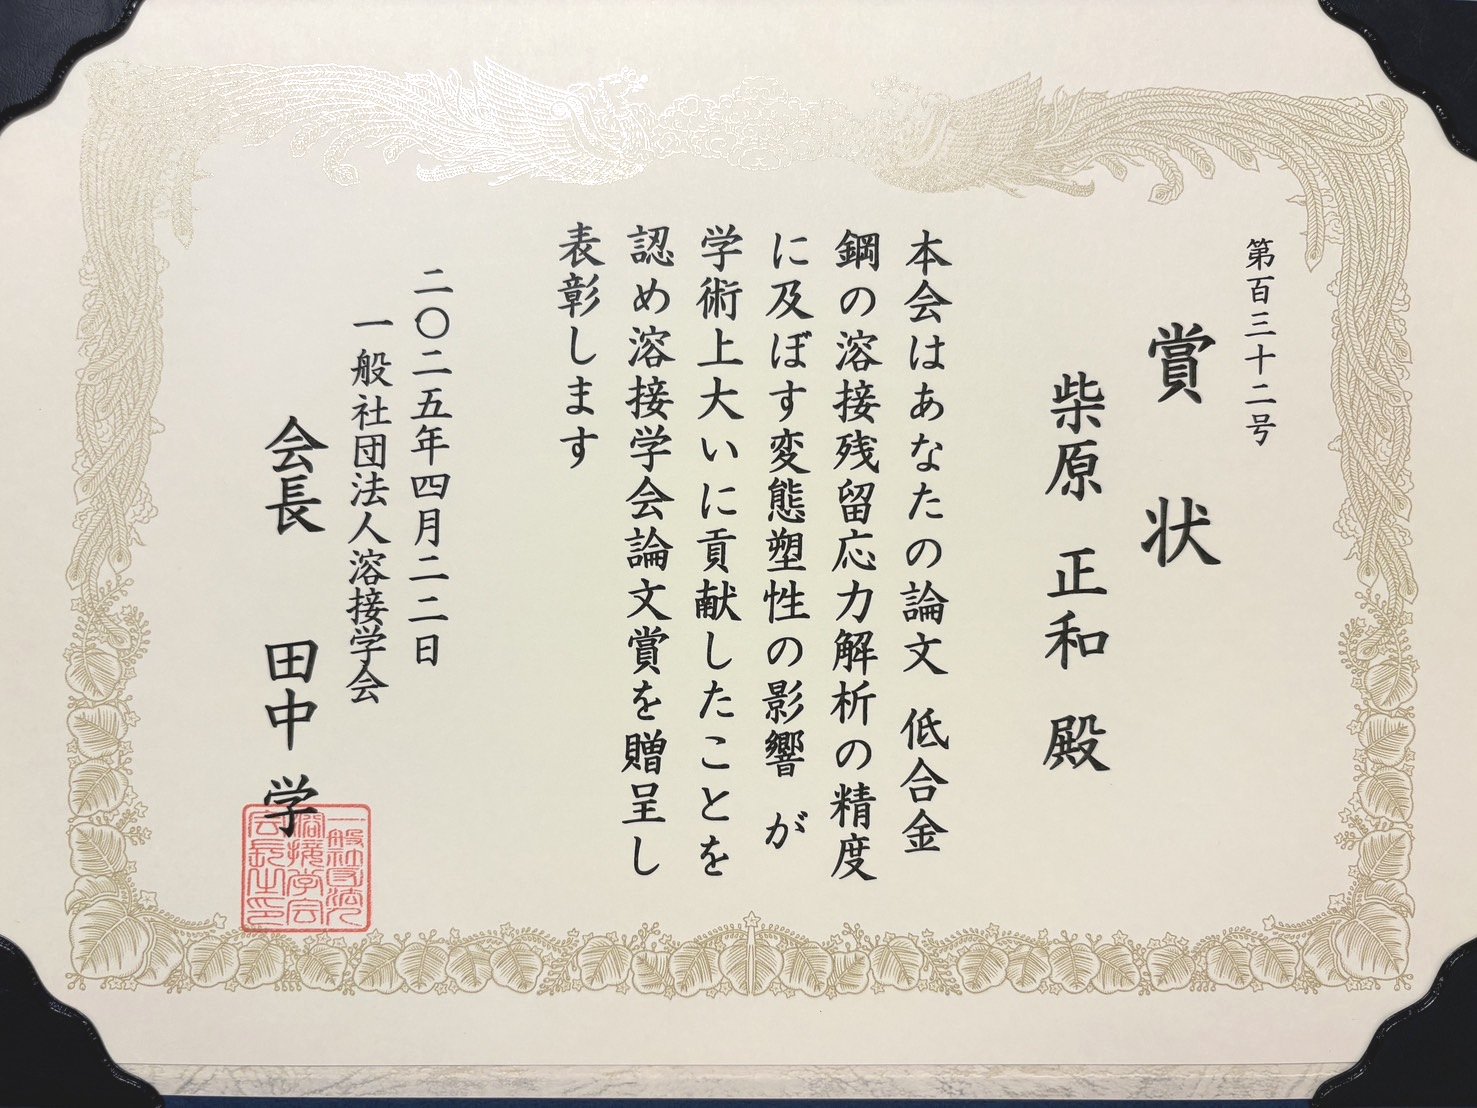 第百三十二号
賞状
柴原 正和 殿
本会はあなたの論文 低合金
鋼の溶接残留応力解析の精度
に及ぼす変態塑性の影響 が
学術上大いに貢献したことを
認め溶接学会論文賞を贈呈し
表彰します
二〇二五年四月二二日
一般社団法人溶接学会
会長 田中 学
一般社団法人
溶接学会
会長之印